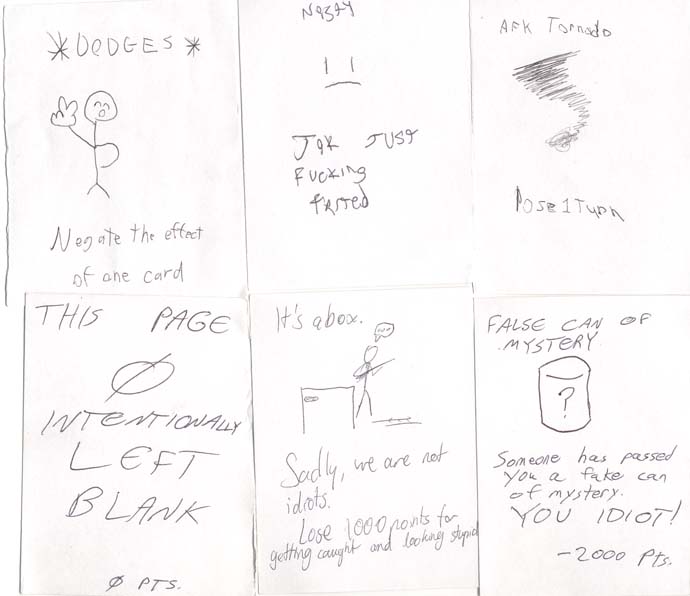 *DODGES*
Negate the effect
of one card
Nasty
JaK JUST
FUCKING
farted
AFK Tornado
Lose 1 Turn
THIS PAGE
Ø
INTENTIONALLY
LEFT
BLANK
Ø PTS.
It's a box.
Sadly, we are not
idiots.
Lose 1000 points for
getting caught and looking stupid
FALSE CAN OF
MYSTERY
?
Someone has passed
you a fake can
of mystery.
YOU IDIOT!
-2000 Pts.